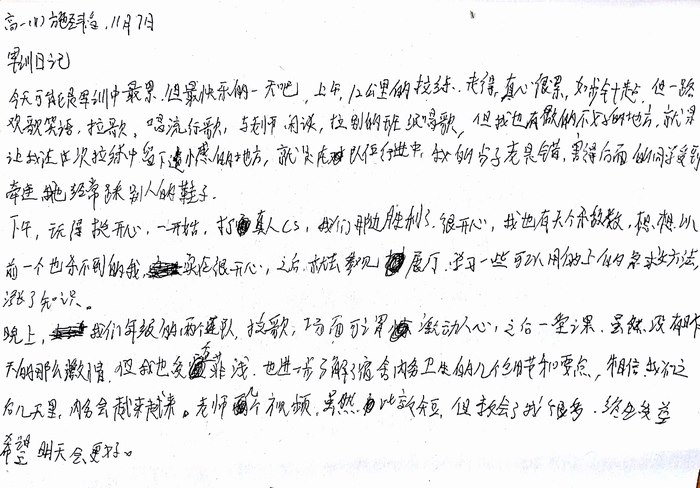 高一(1) 11月7日
军训日记
今天可能是军训中最累,但最快乐的一天吧,上午,12公里的拉练,走得真心很累,但一路
欢歌笑语,拉歌,唱流行歌,与老师闲谈,拉别的班级唱歌,但我也有做的不好的地方,就是
让我这次拉练中留下遗憾的地方,就是在队伍行进中,我的步子老是错,害得后面的同学受到
牵连,经常踩别人的鞋子.
下午,玩得挺开心,一开始,打真人CS,我们那边胜利了,很开心,我也有个杀敌数,想想以
前一个也杀不到的我,实在很开心,之后,就去参观展厅,学习一些可以用的上的急救方法,
涨了知识。
晚上,我们年级的两个连队,拉歌,场面可谓激动人心,之后一堂课,虽然没有昨
天的那么激情,但我也受益菲浅.也进一步了解了宿舍内务卫生的几个细节和要点,相信我在之
后几天里,内务会越来越来。老师几个视频,虽然比较短,但教会了我很多,终生受益
希望明天会更好。